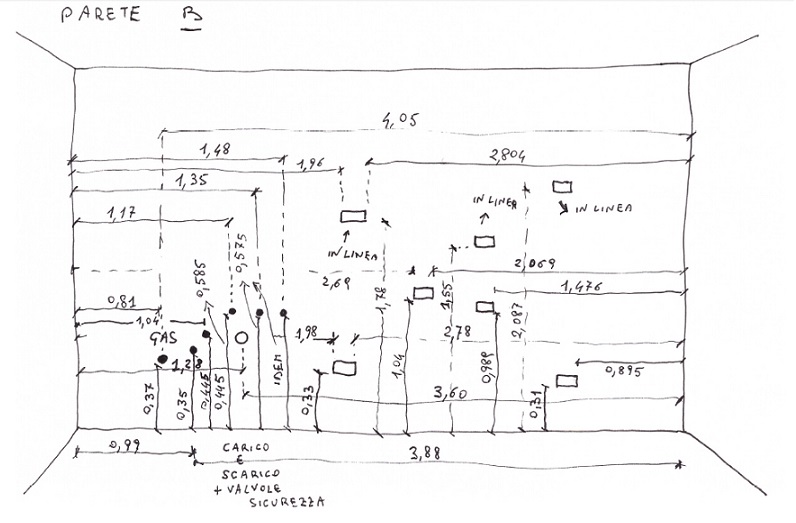 PARETE B
4,05
1,48
1,96
2,804
1,35
IN LINEA
IN LINEA
1,17
IN LINEA
0,575
0,585
2,69
1,78
1,55
2,087
2,069
1,476
0,81
1,04
GAS
1,98
2,78
1,28
IDEM
1,04
0,989
0,895
0,37
0,35
0,445
0,445
0,33
3,60
0,31
0,99
CARICO
E
SCARICO
+ VALVOLE
SICUREZZA
3,88